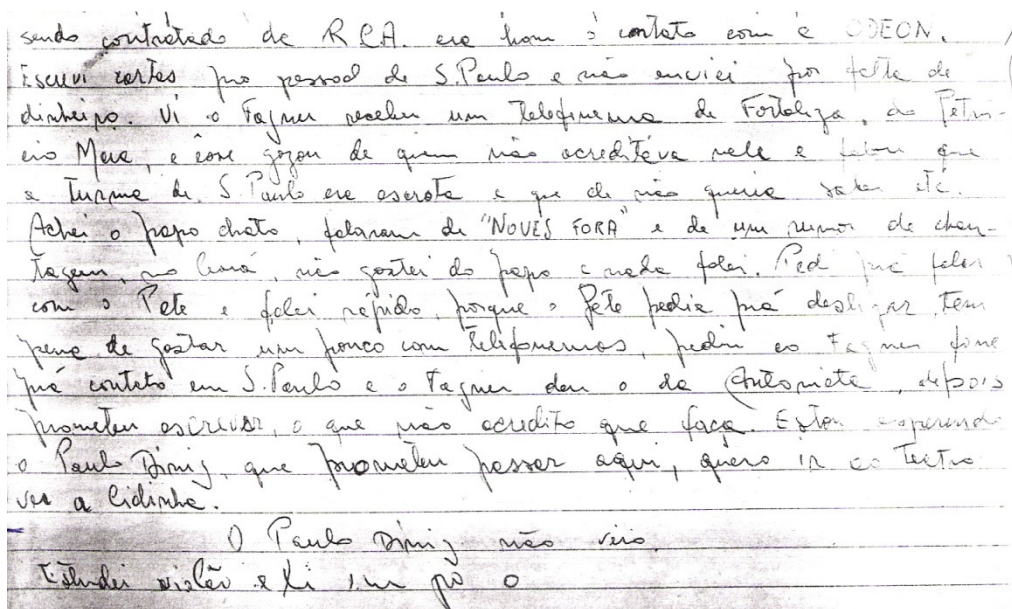 sendo contratado da RCA. era bom o contato com a ODEON.
Escrevi cartas pro pessoal de S.Paulo e não enviei por falta de
dinheiro. Vi o Fagner receber um telefonema de Fortaleza, do Petru-
cio Maia, e esse gozou de quem não acreditava nele e falou que
a turma de S.Paulo era escrota e que ele não queria saber etc.
Achei o papo chato, falaram de "NOVES FORA" e de um rumor de chan-
tagem, no Ceará, não gostei do papo e nada falei. Pedi prá falar
com o Pete e falei rápido, porque o Pete pedia prá desligar, tem
pena de gastar um pouco com telefonemas, pediu ao Fagner fone
prá contato em S.Paulo e o Fagner deu o da Antonieta, depois
prometeu escrever, o que não acredito que faça. Estou esperando
o Paulo Diniz, que prometeu passar aqui, quero ir ao teatro
ver a Cidinha.
O Paulo Diniz não veio.
Estudei violão e li